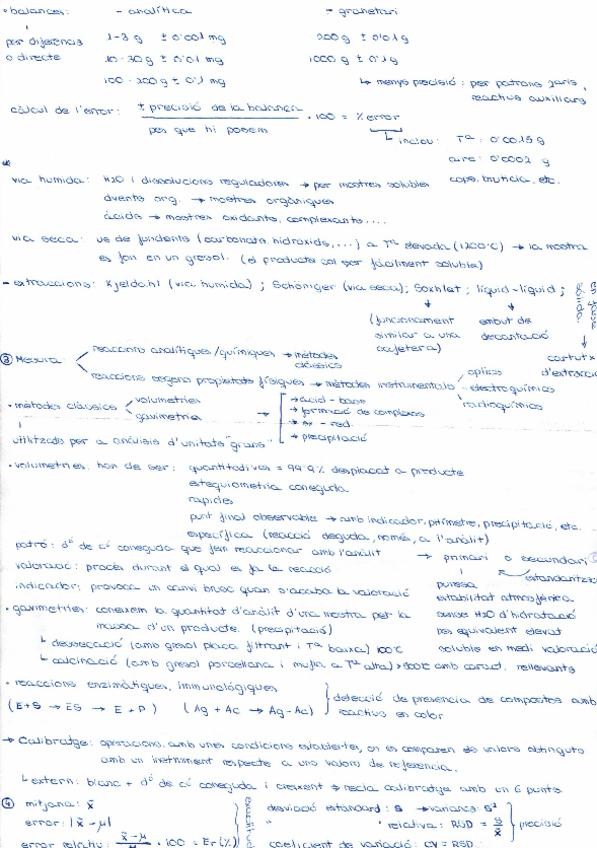 • balances: - analítica - granetari
per diferència 1-3 g ± 0'001 mg 200 g ± 0'01 g
o directe 10-30 g ± 0'01 mg 1000 g ± 0'1 g
100-200 g ± 0'1 mg ↳ menys precisió: per patrons 2aris,
reactius auxiliars
càlcul de l'error: ± precisió de la balança / pes que hi posem · 100 = % error
↳ inclou: Tª: 0'0015 g
aire: 0'0002 g
cops, brutícia, etc.
via humida: H2O i dissolucions reguladores → per mostres solubles
dvents org. → mostres orgàniques
àcids → mostres oxidants, complexants....
via seca: ús de fundents (carbonats, hidròxids,...) a Tª elevada (1200ºC) → la mostra
es fon en un gresol. (el producte sol ser fàcilment soluble)
- extraccions: Kjeldahl (via humida); Schöniger (via seca); Soxhlet; líquid-líquid;
(funcionament embut de
similar a una decantació
cafetera) cartutx
d'extracció
③ Mesura: reaccions analítiques/químiques → mètodes
clàssics
reaccions segons propietats físiques → mètodes instrumentals òptics
electroquímics
radioquímics
• mètodes clàssics volumetries → àcid-base
gravimetria → formació de complexos
→ ox-red.
utilitzats per a anàlisis d'unitats "grans" → precipitació
• volumetries: han de ser: quantitatives = 99'9% desplaçat a producte
estequiometria coneguda
ràpides
punt final observable → amb indicador, pHmetre, precipitació, etc.
específica (reacció deguda, només, a l'anàlit)
patró: dº de cº coneguda que fem reaccionar amb l'anàlit → primari o secundari
valoració: procés durant el qual es fa la reacció puresa estandaritza
indicador: provoca un canvi brusc quan s'acaba la valoració estabilitat atmosfèrica
• gravimetries: coneixem la quantitat d'anàlit d'una mostra per la sense H2O d'hidratació
massa d'un producte. (precipitació) pes equivalent elevat
↳ dessecació (amb gresol placa filtrant i Tª baixa) 100ºC soluble en medi valoració
↳ calcinació (amb gresol porcellana i mufla a Tª alta) amb caract. rellevants
• reaccions enzimàtiques, immunològiques detecció de presència de compostos amb
(E+S → ES → E+P) (Ag + Ac → Ag-Ac) reactius en color
→ Calibratge: operacions, amb unes condicions establertes, on es comparen els valors obtinguts
amb un instrument respecte a uns valors de referència.
↳ extern: blanc + dº de cº coneguda i creixent → recta calibratge amb un 6 punts
④ mitjana: x̄ exactitud desviació estàndard: s → variança: s²
error: |x̄ - μ| " relativa: RSD = s/x̄ precisió
error relatiu: (x̄ - μ)/μ · 100 = Er (%) coeficient de variació: CV = RSD.